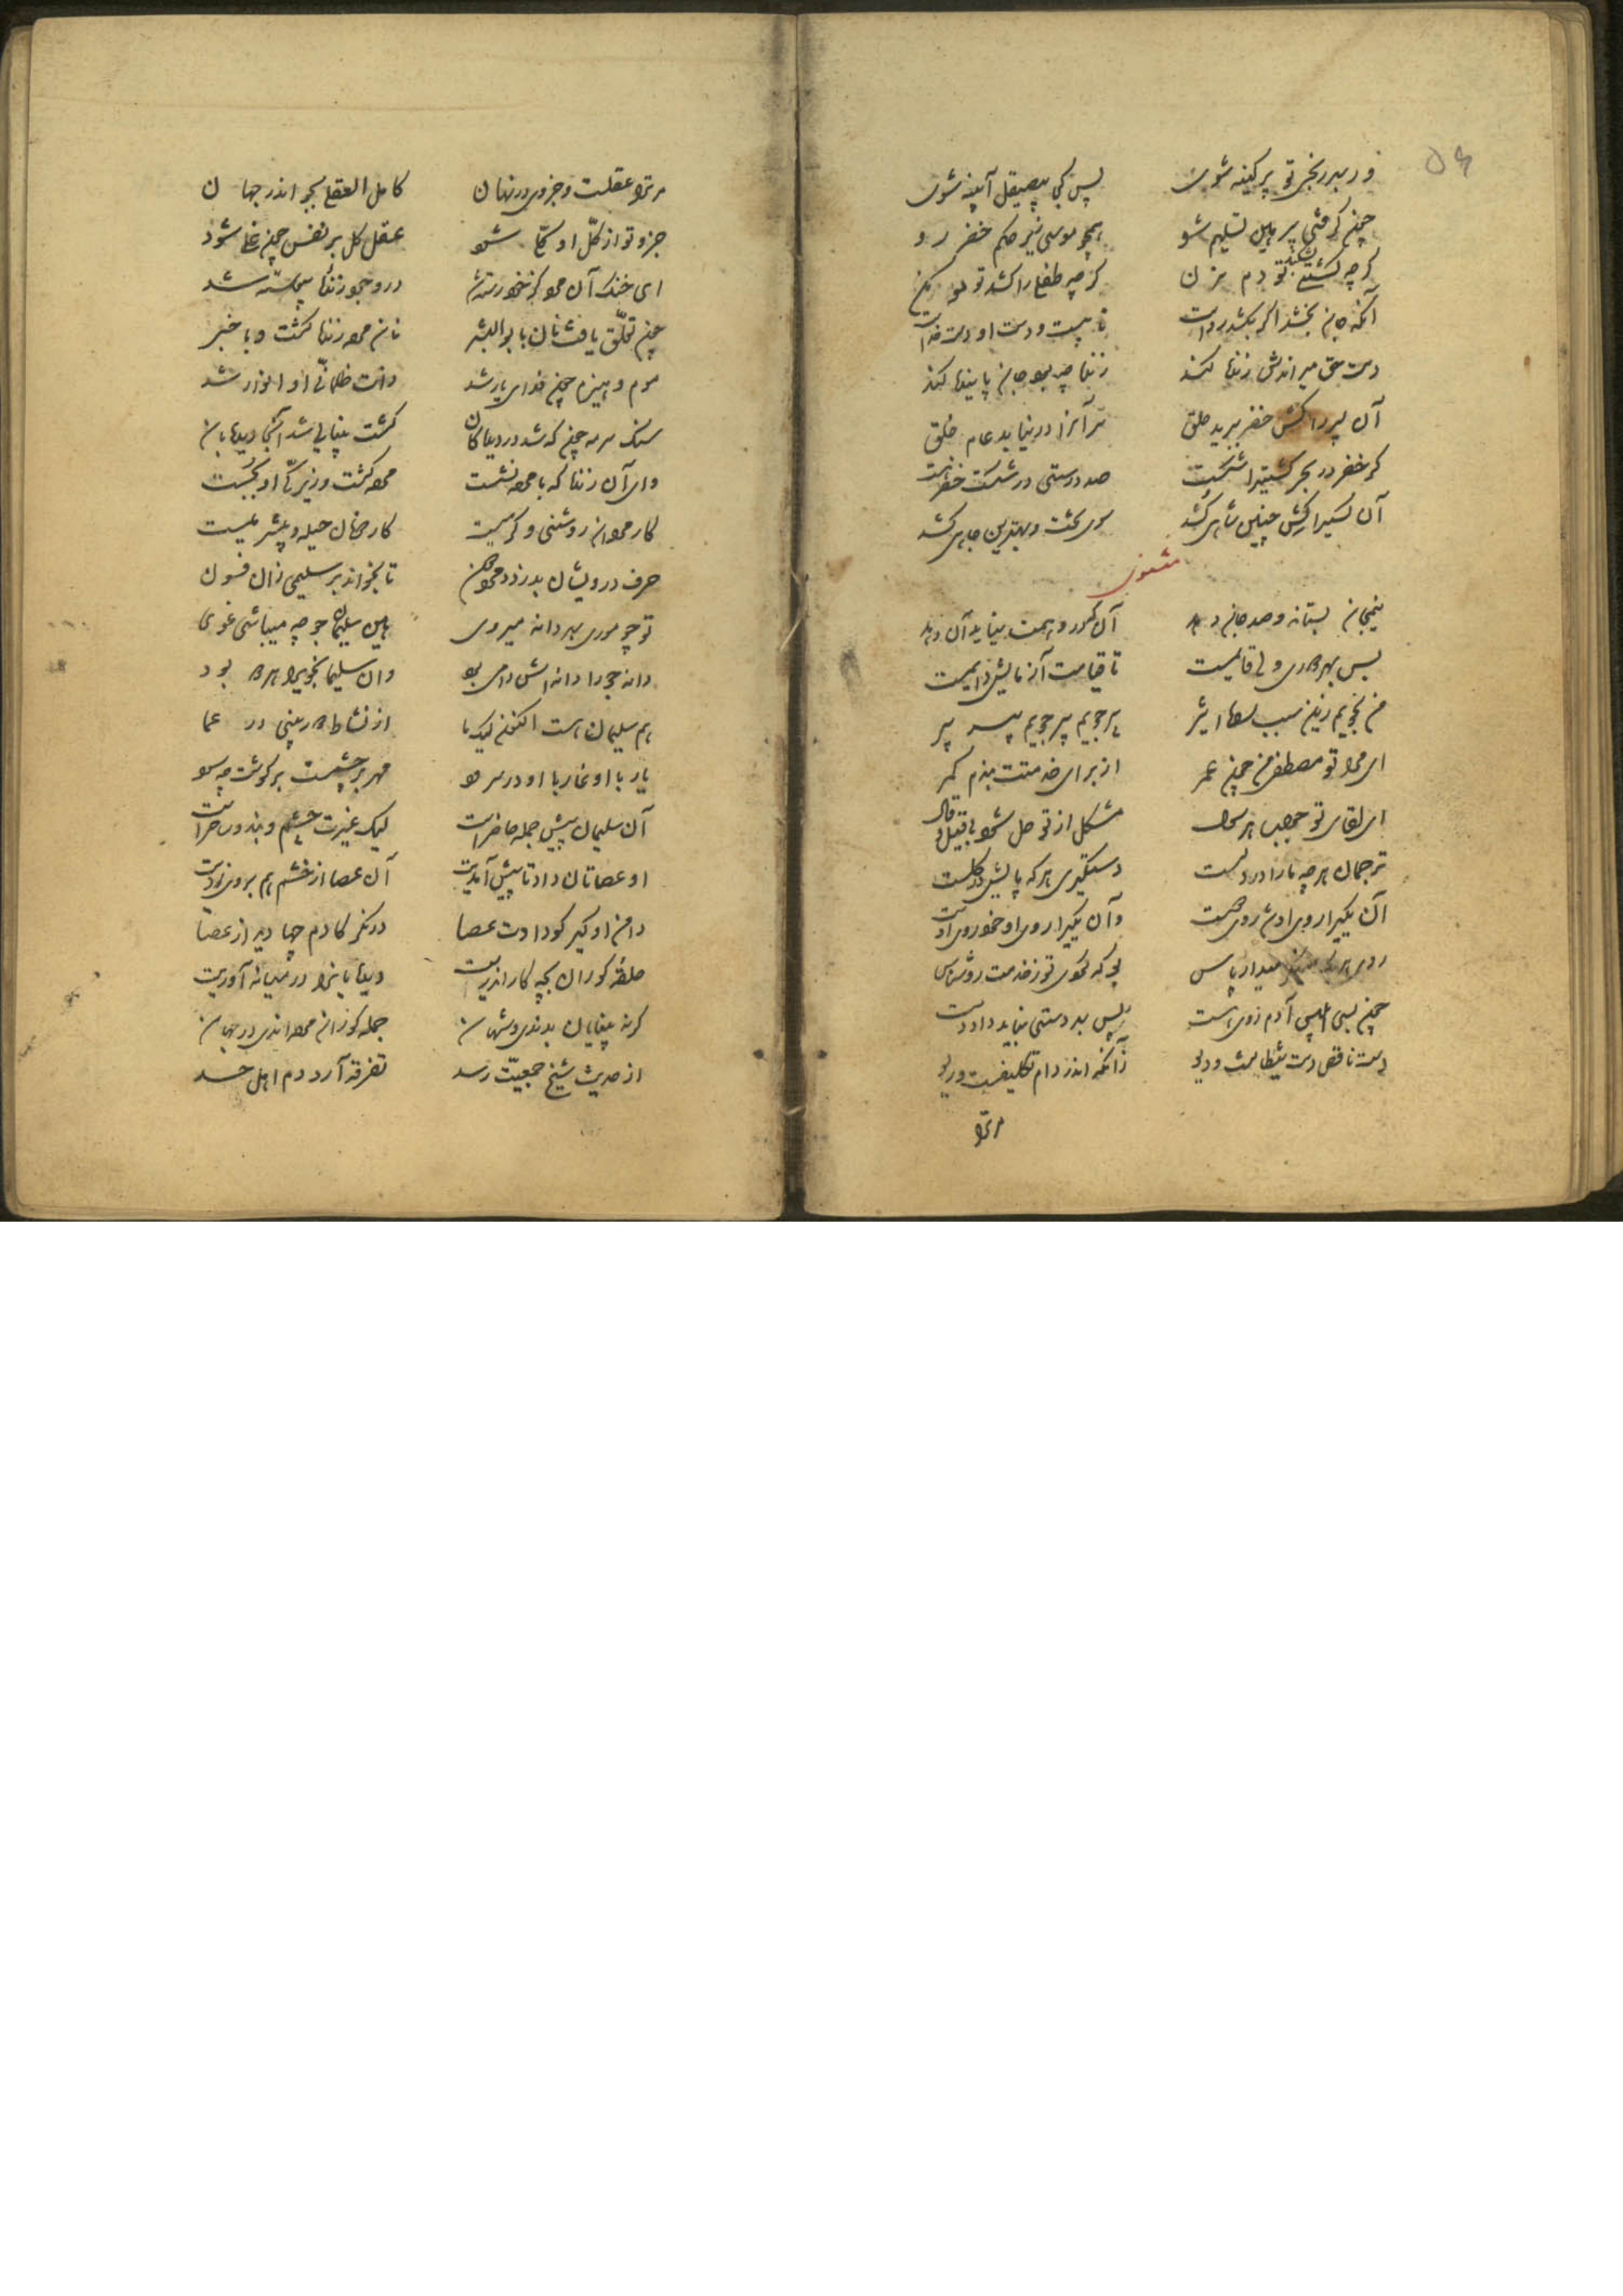 ۵۶
ور بهر زخمی تو پر کینه شوی پس کجا بی‌صیقل آیینه شوی
چون گرفتی پیر هین تسلیم شو همچو موسی زیر حکم خضر رو
گرچه کشتی بشکند تو دم مزن گرچه طفلی را کشد تو مو مکن
آنکه جان بخشد اگر بکشد رواست نایبست و دست او دست خداست
دست حق میراندش زنده‌ش کند زنده چه بود جان پاینده‌ش کند
آن پسر را کش خضر ببرید حلق سر آنرا در نیابد عام خلق
گر خضر در بحر کشتی را شکست صد درستی در شکست خضر هست
آن کسی را کش چنین شاهی کشد سوی تخت و بهترین جاهی کشد
مثنوی
نیم جان بستاند و صد جان دهد آن که در وهمت نیاید آن دهد
پس بهر دوری ولی قایمست تا قیامت آزمایش دایمست
من نجویم زین سپس راه اثیر پیر جویم پیر جویم پیر پیر
ای مرا تو مصطفی من چون عمر از برای خدمتت بندم کمر
ای لقای تو جواب هر سؤال مشکل از تو حل شود بی قیل و قال
ترجمان هرچه ما را در دلست دستگیری هر که پایش در گلست
آن یکی را روی او شد روی دوست وآن یکی را روی او خود روی اوست
روی هر یک میدار پاس بو که گردی تو ز خدمت روشناس
چون بسی ابلیس آدم روی هست پس بهر دستی نباید داد دست
دست ناقص دست شیطانست و دیو زآنکه اندر دام تکلیفست و ریو
مر ترا
مر ترا عقلیست جزوی در نهان کامل العقلی بجو اندر جهان
جزو تو از کل او کلی شود عقل کل بر نفس چون غلی شود
ای خنک آن مرده کز خود رسته شد در وجود زنده پیوسته شد
چون تعلق یافت نان با بوالبشر نان مرده زنده گشت و با خبر
موم و هیزم چون فدای نار شد ذات ظلمانی او انوار شد
سنگ سرمه چون که شد در دیدگان گشت بینایی شد آنجا دیده‌بان
وای آن زنده که با مرده نشست مرده گشت و زندگی از او بجست
کار مردان روشنی و گرمیست کار دونان حیله و بی‌شرمیست
حرف درویشان بدزدد مرد دون تا بخواند بر سلیمی زان فسون
تو چو موری بهر دانه میروی هین سلیمان جو چه میباشی غوی
دانه جو را دانه‌اش دامی بود وان سلیمان جوی را هر دو بود
هم سلیمان هست اکنون لیک ما از نشاط دوربینی در عما
آن سلیمان پیش جمله حاضرست لیک غیرت چشم‌بند و ساحرست
او عصاتان داد تا پیش آمدیت آن عصا از خشم هم بر وی زدیت
دامن او گیر کو دادت عصا درنگر کادم چها دید از عصا
حلقهٔ کوران بچه کار اندریت دیده‌بان را در میانه آوریت
گرنه بینایان بدندی و شهان جمله کوران مرده‌اندی در جهان
از حدیث شیخ جمعیت رسد تفرقه آرد دم اهل حسد